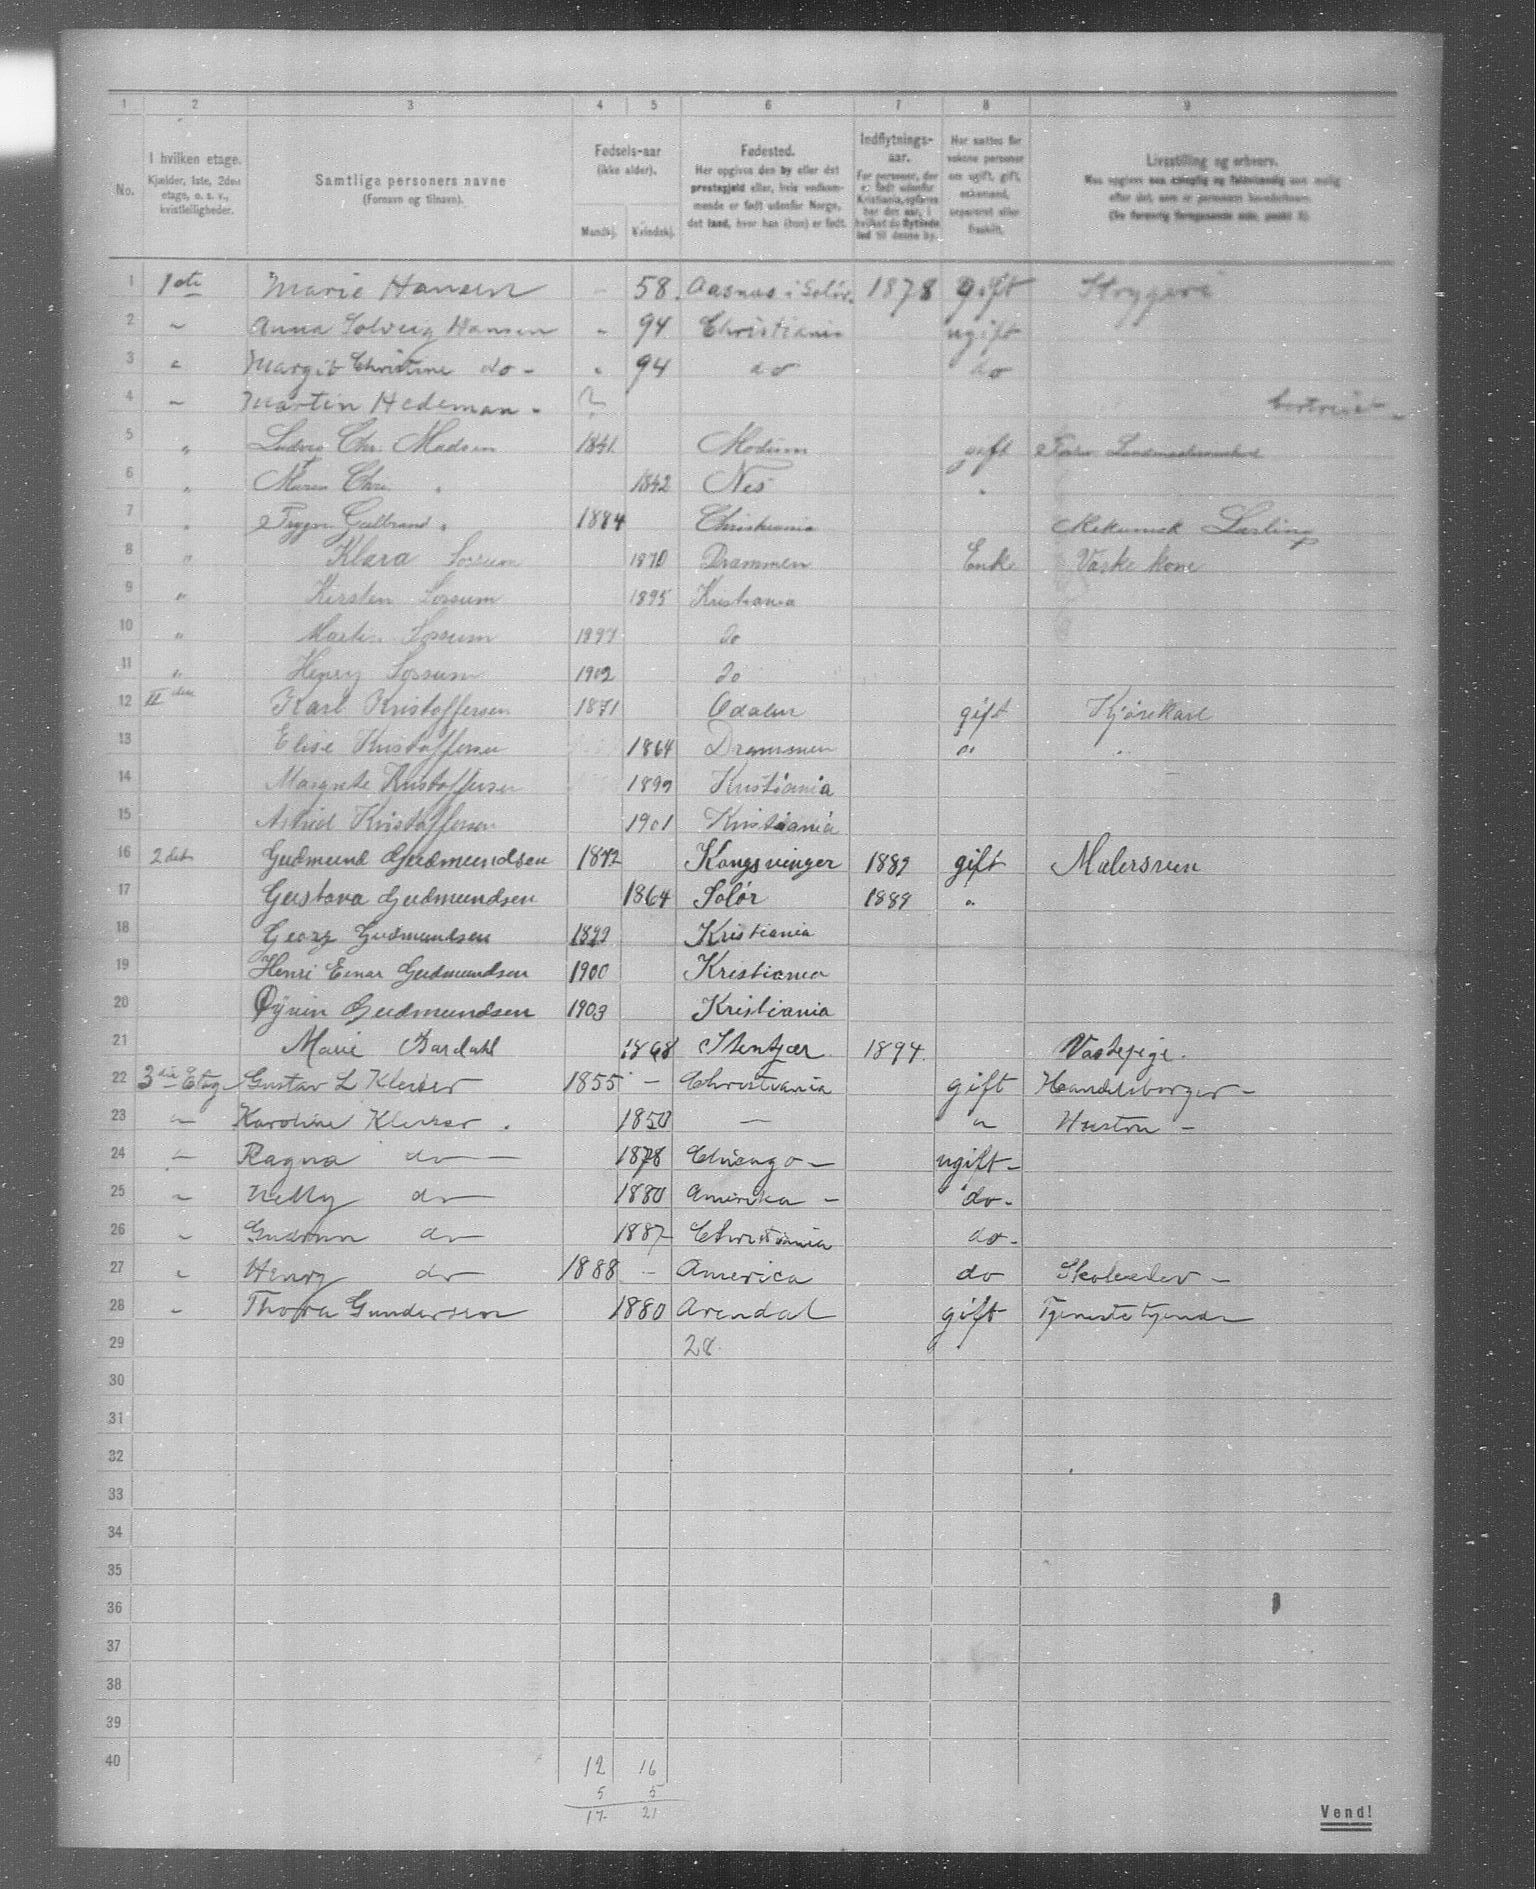 1 2 3 4 5 6 7 8 9
No.
I hvilken etage.
Kjælder, 1ste, 2den
etage, o. s. v.,
kvistleiligheder.
Samtlige personers navne
(Fornavn og tilnavn).
Fødsels-aar
(ikke alder).
Mandkj. Kvindekj.
Fødested.
Her opgives den by eller det
prestegjeld eller, hvis vedkom-
mende er født udenfor Norge,
det land, hvor han (hun) er født.
Indflytnings-
aar.
For personer, der
er født udenfor
Kristiania, opføres
her det aar, i
hvilket de flyttede
ind til denne by.
Her sættes for
voksne personer
om ugift, gift,
enkemand,
separeret eller
fraskilt.
Livsstilling og erhverv.
Man opgiver saa nøiagtig og fuldstændig som mulig
efter det, som er personens hovederhverv.
(Se forøvrig foregaaende side, punkt 3).
1 1ste Marie Hansen - 58. Aasnas i Solör. 1878 gift Strygeri
2 " Anna Solveig Hansen " 94 Christiania ugift
3 " Margit Christine do - " 94 do do
4 " Martin Hedeman - ? bortreist -
5 " Ludvig Chr. Madsen 1841. Modum gift
6 " Maren Chr. " 1842 Nes "
7 " Trygve Gulbrand " 1884 Christiania Mekanisk Lærling
8 " Klara Sorsum 1870 Drammen Enke Vaske kone
9 " Kirsten Sorsum 1895 Kristiania
10 " Martin Sorsum 1897 do
11 " Henry Sorsum 1902 do
12 II den Karl Kristoffersen 1871 Odalen gift Kjørekarl
13 Elise Kristoffersen 1864 Drammen " "
14 Margrete Kristoffersen 1899 Kristiania
15 Astrid Kristoffersen 1901 Kristiania
16 2det Gudmund Gudmundsen 1872 Kongsvinger 1889 gift Malersven
17 Gustava Gudmundsen 1864 Solör 1889 "
18 Georg Gudmundsen 1899 Kristiania
19 Henri Einar Gudmundsen 1900 Kristiania
20 Øyvin Gudmundsen 1903 Kristiania
21 Marie Bardahl 1868 Stenkjær 1894. Vaskepige.
22 3die Etag Gustav L Kleiser 1855 - Christiania gift Handelsborger -
23 " Karoline Kleiser . 1850 — " Hustru -
24 " Ragna do — 1878 Chicago - ugift -
25 " Nelly do 1880 Amerika - do -
26 " Gudrun do 1887 - Christiania do -
27 " Henry do 1888 - America do Skoleelev -
28 " Thora Gundersen 1880 Arendal gift Tjenestetjener
29 28.
30
31
32
33
34
35
36
37
38
39
40
12 16
5 5
17 21
Vend!